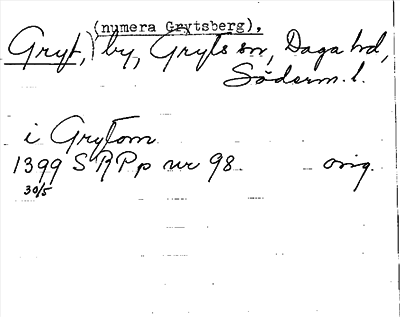 (numera Grytsberg),
Gryt, by, Gryts sn, Daga hd,
Söderm. l.
i Grytom
1399 SRPp nr 98. orig.
30/5